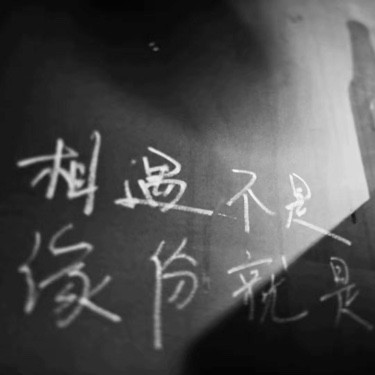 相遇不是
缘份就是